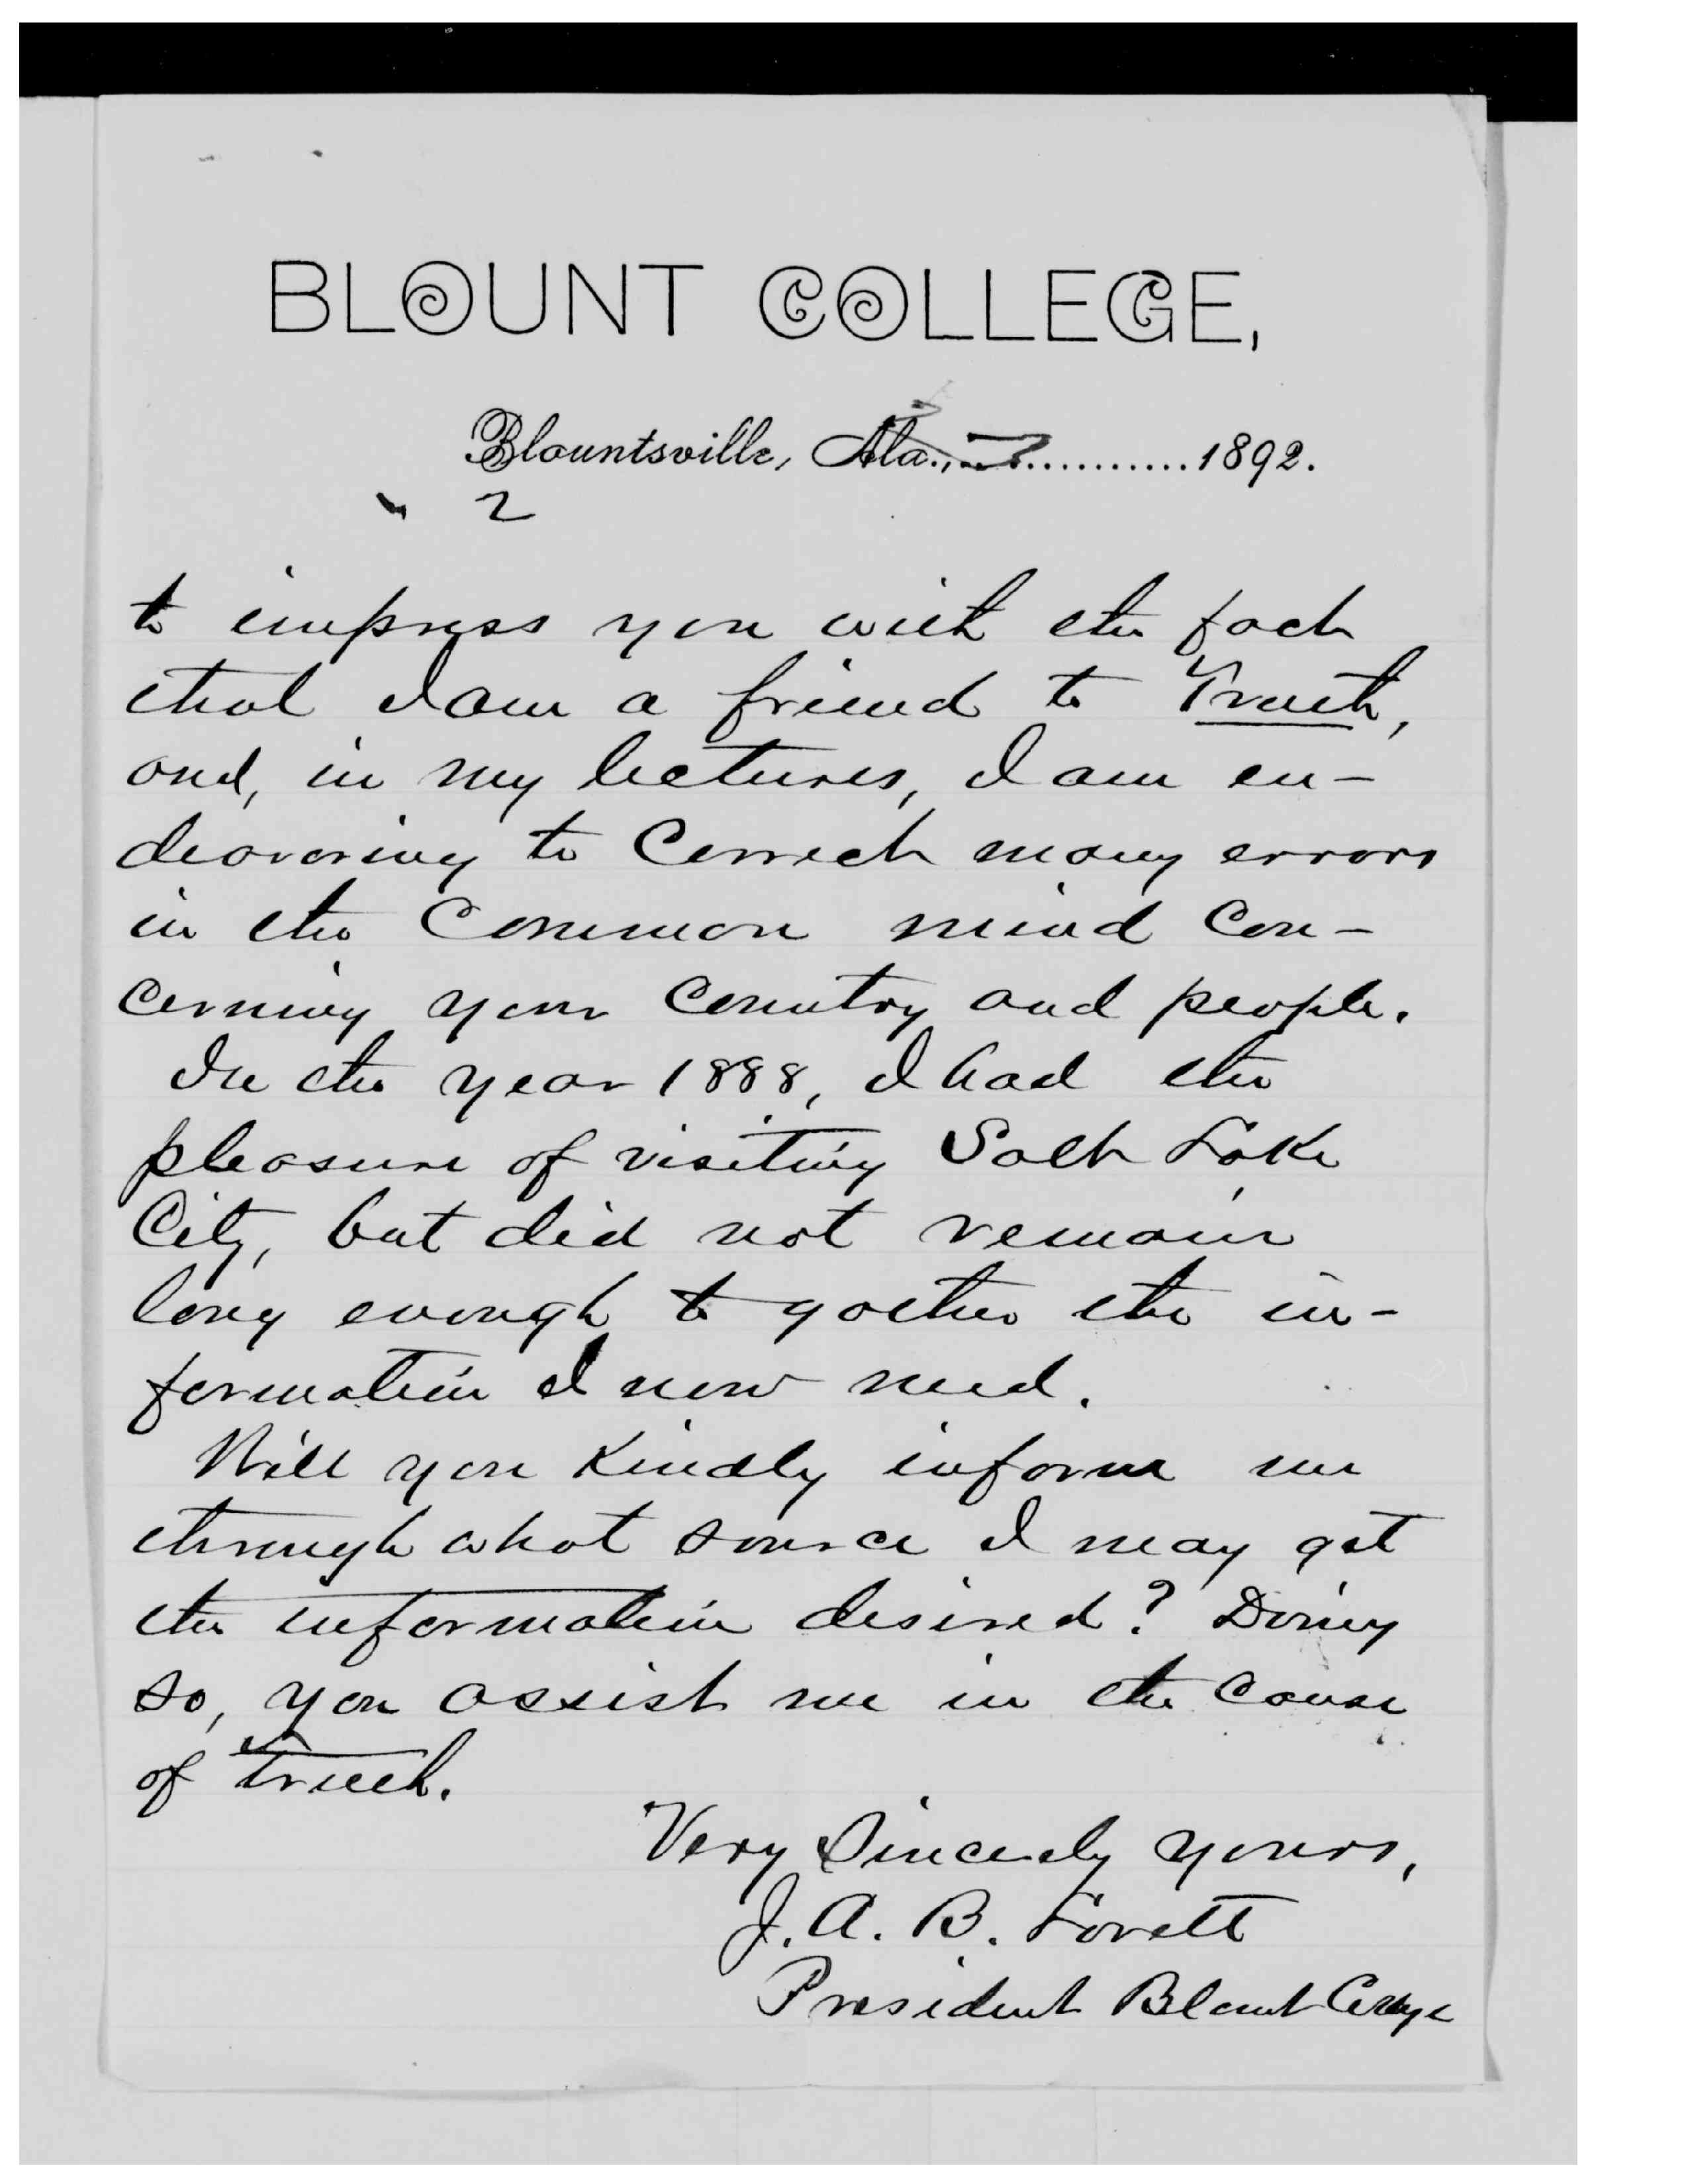 BLOUNT COLLEGE,
Blountsville, Ala., 1892.
2
to impress you with the fact
that I am a friend to Truth,
and, in my lectures, I am en-
deavoring to Correct many errors
in the Common mind Con-
cerning your Country and people.
In the year 1888, I had the
pleasure of visiting Salt Lake
City, but did not remain
long enough to gather the in-
formation I now need.
Will you Kindly inform me
through what source I may get
the information desired? Doing
so, you assist me in the Cause
of truth.
Very Sincerely yours,
J. A. B. Lovett
President Blount College